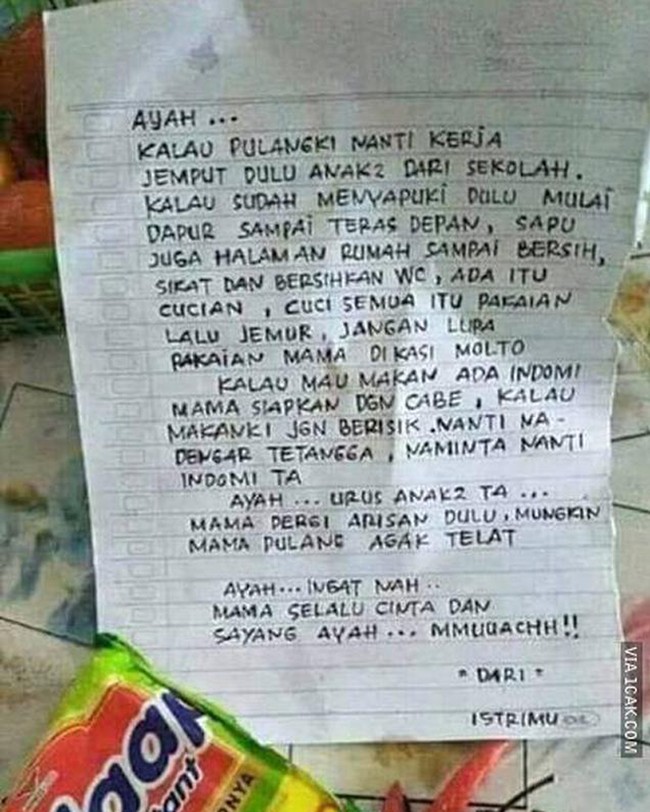 AYAH ...
KALAU PULANGKI NANTI KERJA
JEMPUT DULU ANAK2 DARI SEKOLAH.
KALAU SUDAH MENYAPUKI DULU MULAI
DAPUR SAMPAI TERAS DEPAN, SAPU
JUGA HALAMAN RUMAH SAMPAI BERSIH,
SIKAT DAN BERSIHKAN WC, ADA ITU
CUCIAN , CUCI SEMUA ITU PAKAIAN
LALU JEMUR, JANGAN LUPA
PAKAIAN MAMA DI KASI MOLTO
KALAU MAU MAKAN ADA INDOMI
MAMA SIAPKAN DGN CABE, KALAU
MAKANKI JGN BERISIK .NANTI NA-
DENGAR TETANGGA, NAMINTA NANTI
INDOMI TA
AYAH ... URUS ANAK2 TA ...
MAMA PERGI ARISAN DULU, MUNGKIN
MAMA PULANG AGAK TELAT
AYAH... INGAT NAH ..
MAMA SELALU CINTA DAN
SAYANG AYAH ... MMUUACHH!!
" DARI "
ISTRIMU
VIA 1CAK.COM